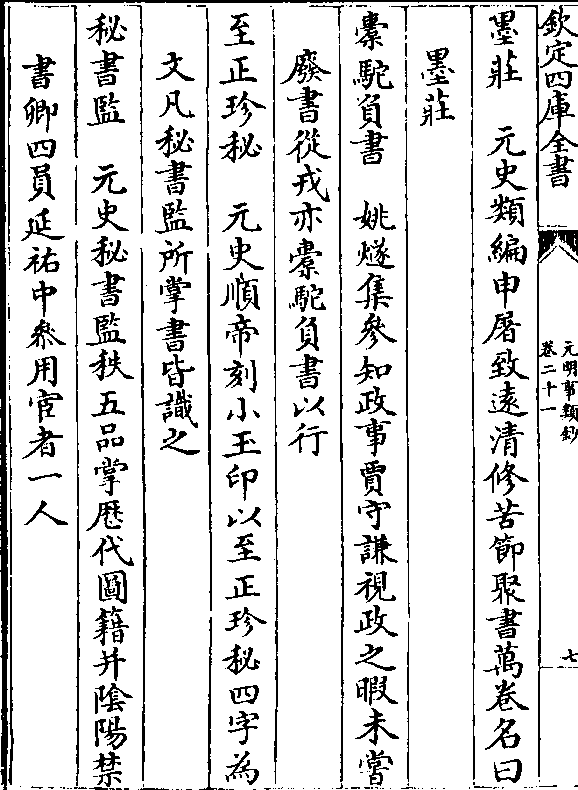 欽定四庫全書
元明事類鈔
卷二十一
七
墨莊　元史類編申屠致遠清修苦節聚書萬卷名曰
墨莊
橐駝負書　姚燧集參知政事賈守謙視政之暇未嘗
廢書從戎亦橐駝負書以行
至正珍秘　元史順帝刻小玉印以至正珍秘四字為
文凡秘書監所掌書皆識之
秘書監　元史秘書監秩五品掌歷代圖籍并陰陽禁
書卿四員延祐中叅用宦者一人